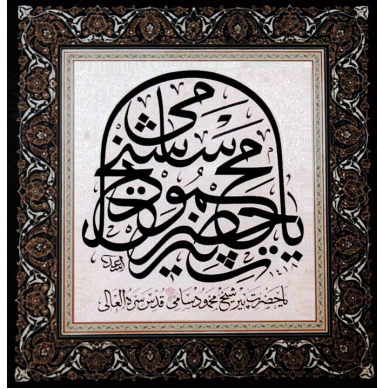 يا حضرت پير شيخ محمود سامي
١٤١٨
يا حضرت پير شيخ محمود سامي قدس سره العالي